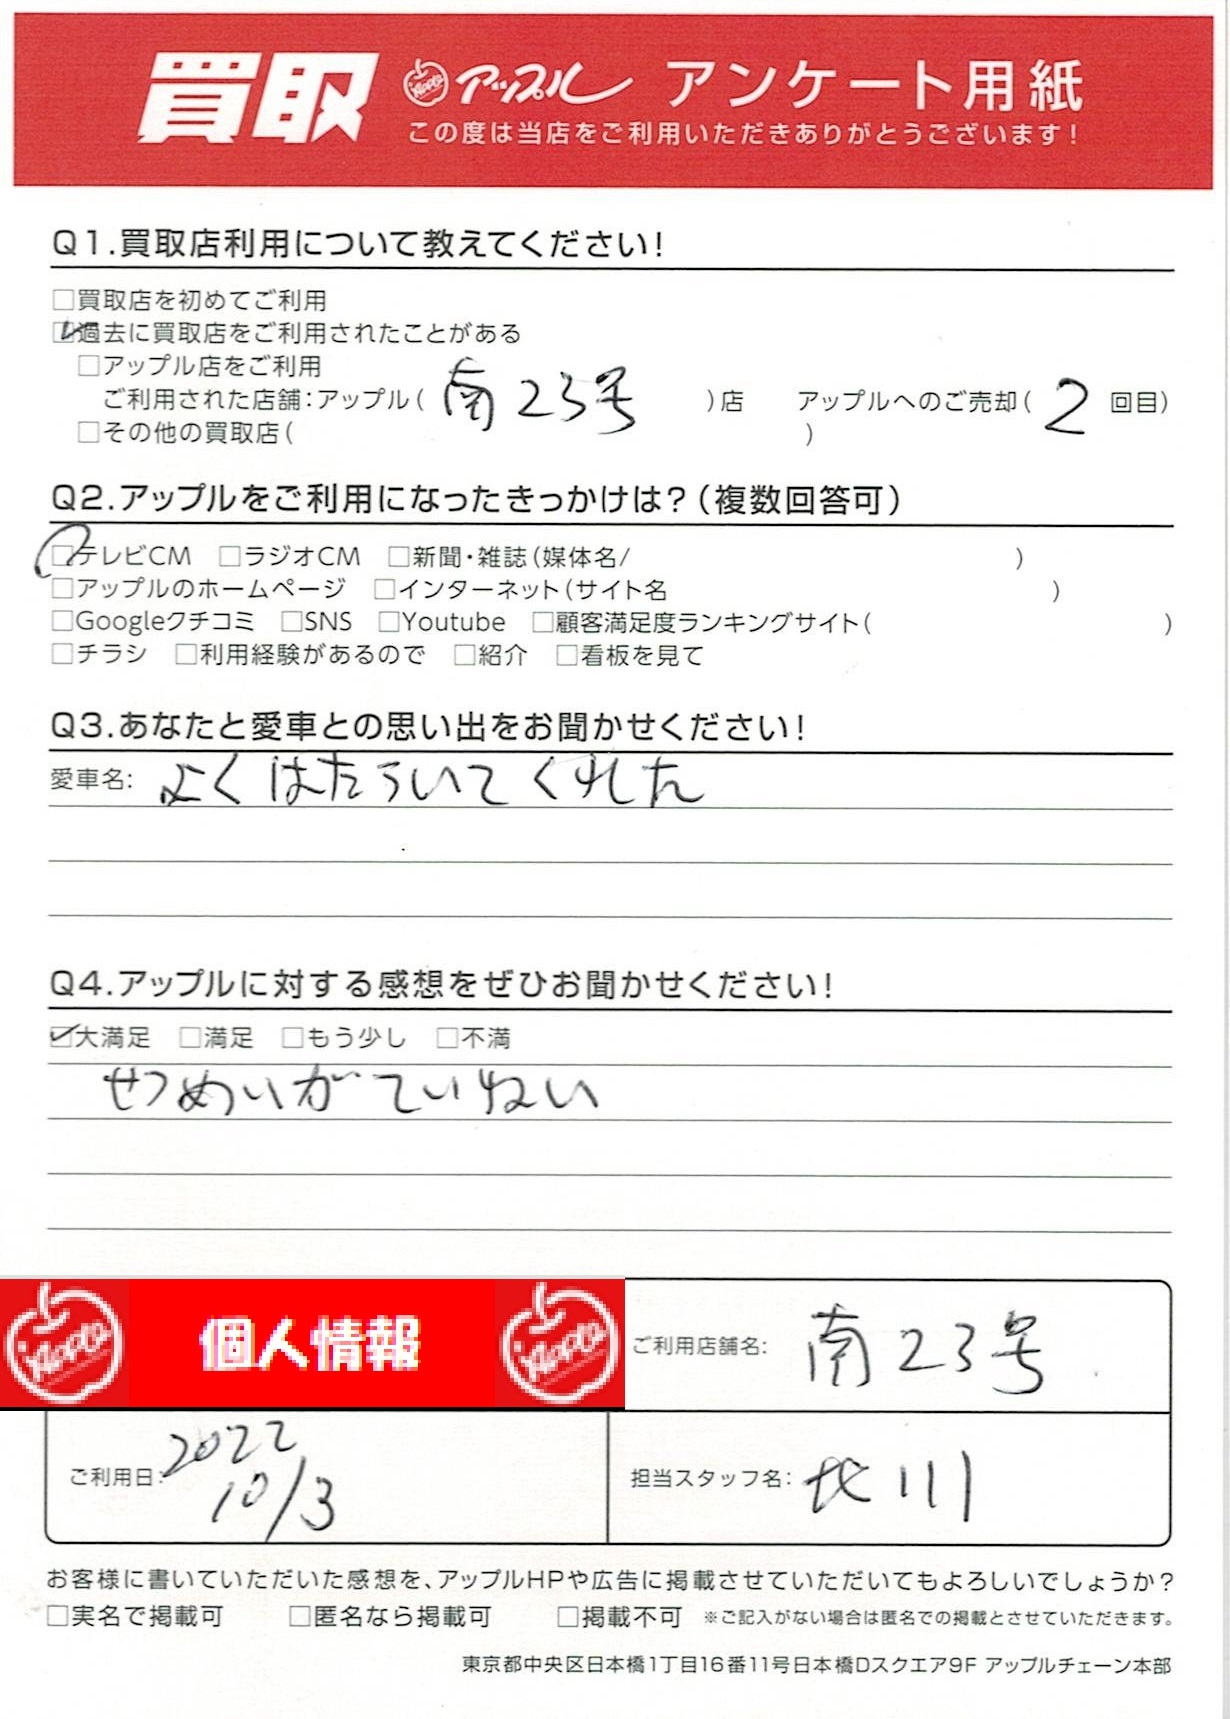 買取 Apple アップル アンケート用紙
この度は当店をご利用いただきありがとうございます!
Q1.買取店利用について教えてください!
□買取店を初めてご利用
☑過去に買取店をご利用されたことがある
□アップル店をご利用
ご利用された店舗:アップル( 南23号 )店 アップルへのご売却( 2 回目)
□その他の買取店( )
Q2.アップルをご利用になったきっかけは?(複数回答可)
☑テレビCM □ラジオCM □新聞・雑誌(媒体名/ )
□アップルのホームページ □インターネット(サイト名 )
□Googleクチコミ □SNS □Youtube □顧客満足度ランキングサイト( )
□チラシ □利用経験があるので □紹介 □看板を見て
Q3.あなたと愛車との思い出をお聞かせください!
愛車名: よくはたらいてくれた
Q4.アップルに対する感想をぜひお聞かせください!
☑大満足 □満足 □もう少し □不満
せつめいがていねい
Apple 個人情報 Apple
ご利用店舗名: 南23号
ご利用日: 2022 10/3
担当スタッフ名: 北川
お客様に書いていただいた感想を、アップルHPや広告に掲載させていただいてもよろしいでしょうか?
□実名で掲載可 □匿名なら掲載可 □掲載不可 ※ご記入がない場合は匿名での掲載とさせていただきます。
東京都中央区日本橋1丁目16番11号日本橋Dスクエア9F アップルチェーン本部